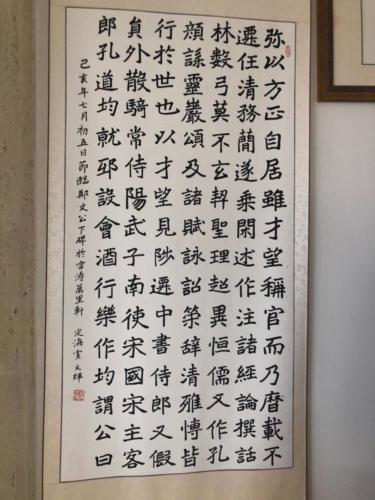 弥以方正自居雖才望稱官而乃曆載不
遷任清務蕳遂乗閑述作注諸經論撰話
林數弓莫不玄契聖理超異恒儒又作孔
顔誄靈巖頌及諸賦詠詔策辭清雅博皆
行於世也以才望見陟遷中書侍郎又假
貟外散騎常侍陽武子南使宋國宋主客
郎孔道均就邸設會酒行樂作均謂公曰
己亥年七月初五日節臨鄭文公下碑於雲濤萬里軒 定海